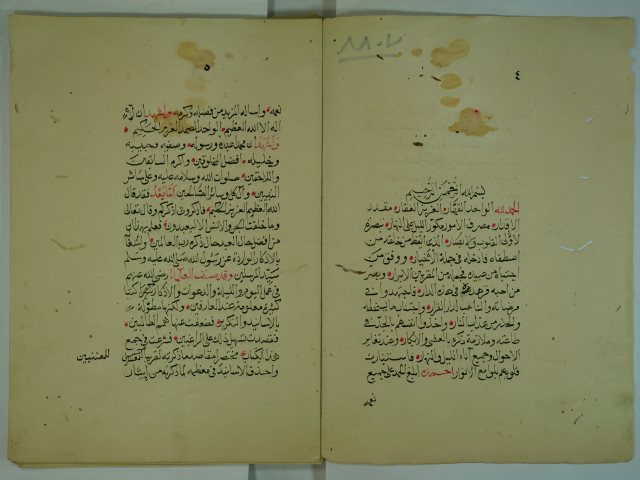 ٨٨٠٧
٤
بسم الله الرحمن الرحيم
الحمد لله الواحد القهار العزيز الغفار مقدر
الاقدار مصرف الامور مكور الليل على النهار تبصرة
لاولى القلوب والابصار الذى ايقظ من خلقه من
اصطفاه فادخله فى جملة الاخيار ووفق من
اجتباه من عبيده فجعله من المقربين الابرار وبصر
من احبه فزهدهم فى هذه الدار فاجتهدوا فى
مرضاته والتأهب لدار القرار واجتناب ما يسخطه
والحذر من عذاب النار واخذوا انفسهم بالجد فى
طاعته وملازمة ذكره بالعشى والابكار وعند تغاير
الاحوال وجميع آناء الليل والنهار فاستنارت
قلوبهم بلوامع الانوار احمده ابلغ الحمد على جميع
نعمه
٥
نعمه واساله المزيد من فضله وكرمه واشهد ان لا
اله الا الله العظيم الواحد الصمد العزيز الحكيم
واشهد ان محمدا عبده ورسوله وصفيه وحبيبه
وخليله افضل المخلوقين واكرم السابقين
واللاحقين صلوات الله وسلامه عليه وعلى سائر
النبيين وآل كل وسائر الصالحين اما بعد فقد قال
الله العظيم العزيز الحكيم فاذكرونى اذكركم وقال تعالى
وما خلقت الجن والانس الا ليعبدون فعلم بهذا ان
من افضل حال العبد حال ذكره رب العالمين واشتغاله
بالاذكار الواردة عن رسول الله صلى الله عليه وسلم
سيد المرسلين وقد صنف العلماء رضى الله عنهم
فى عمل اليوم والليلة والدعوات والاذكار كتبا
كثيرة معلومة عند العارفين ولكنها مطولة
بالاسانيد والتكرير فضعفت عنها همم الطالبين
فقصدت تسهيل ذلك على الراغبين فشرعت فى جمع
هذا الكتاب مختصرا مقاصد ما ذكرته تقريبا للمعتنين
واحذف الاسانيد فى معظمه لما ذكرته من ايثار
للمعتنيين